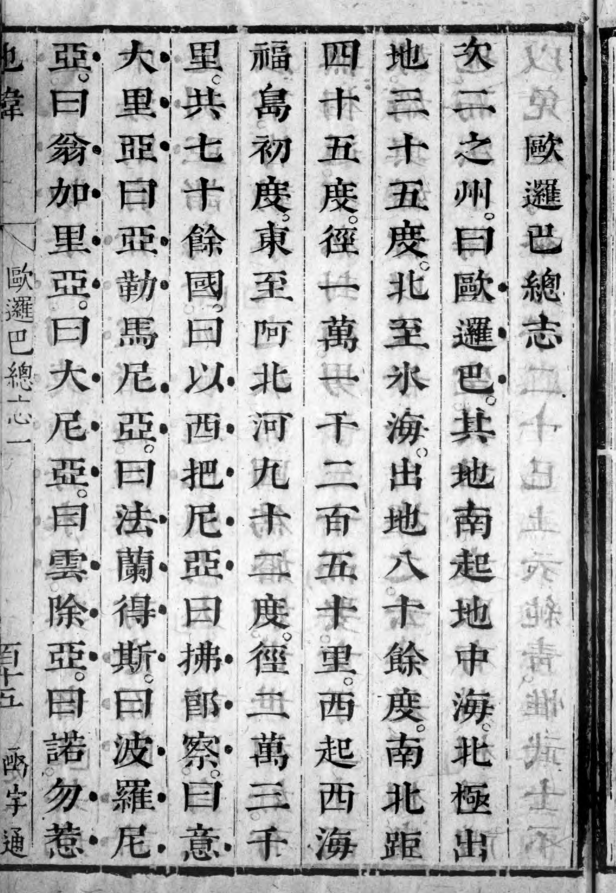 歐邏巴總志
次二之州。曰歐邏巴。其地南起地中海。北極出
地三十五度。北至氷海。出地八十餘度。南北距
四十五度。徑一萬一千二百五十里。西起西海
福島初度。東至阿北河九十二度。徑二萬三千
里。共七十餘國。曰以西把尼亞。曰拂郎察。曰意
大里亞。曰亞勒馬尼亞。曰法蘭得斯。曰波羅尼
亞。曰翁加里亞。曰大尼亞。曰雲除亞。曰諾勿惹
地緯
歐邏巴總志一
百十五
函宇通